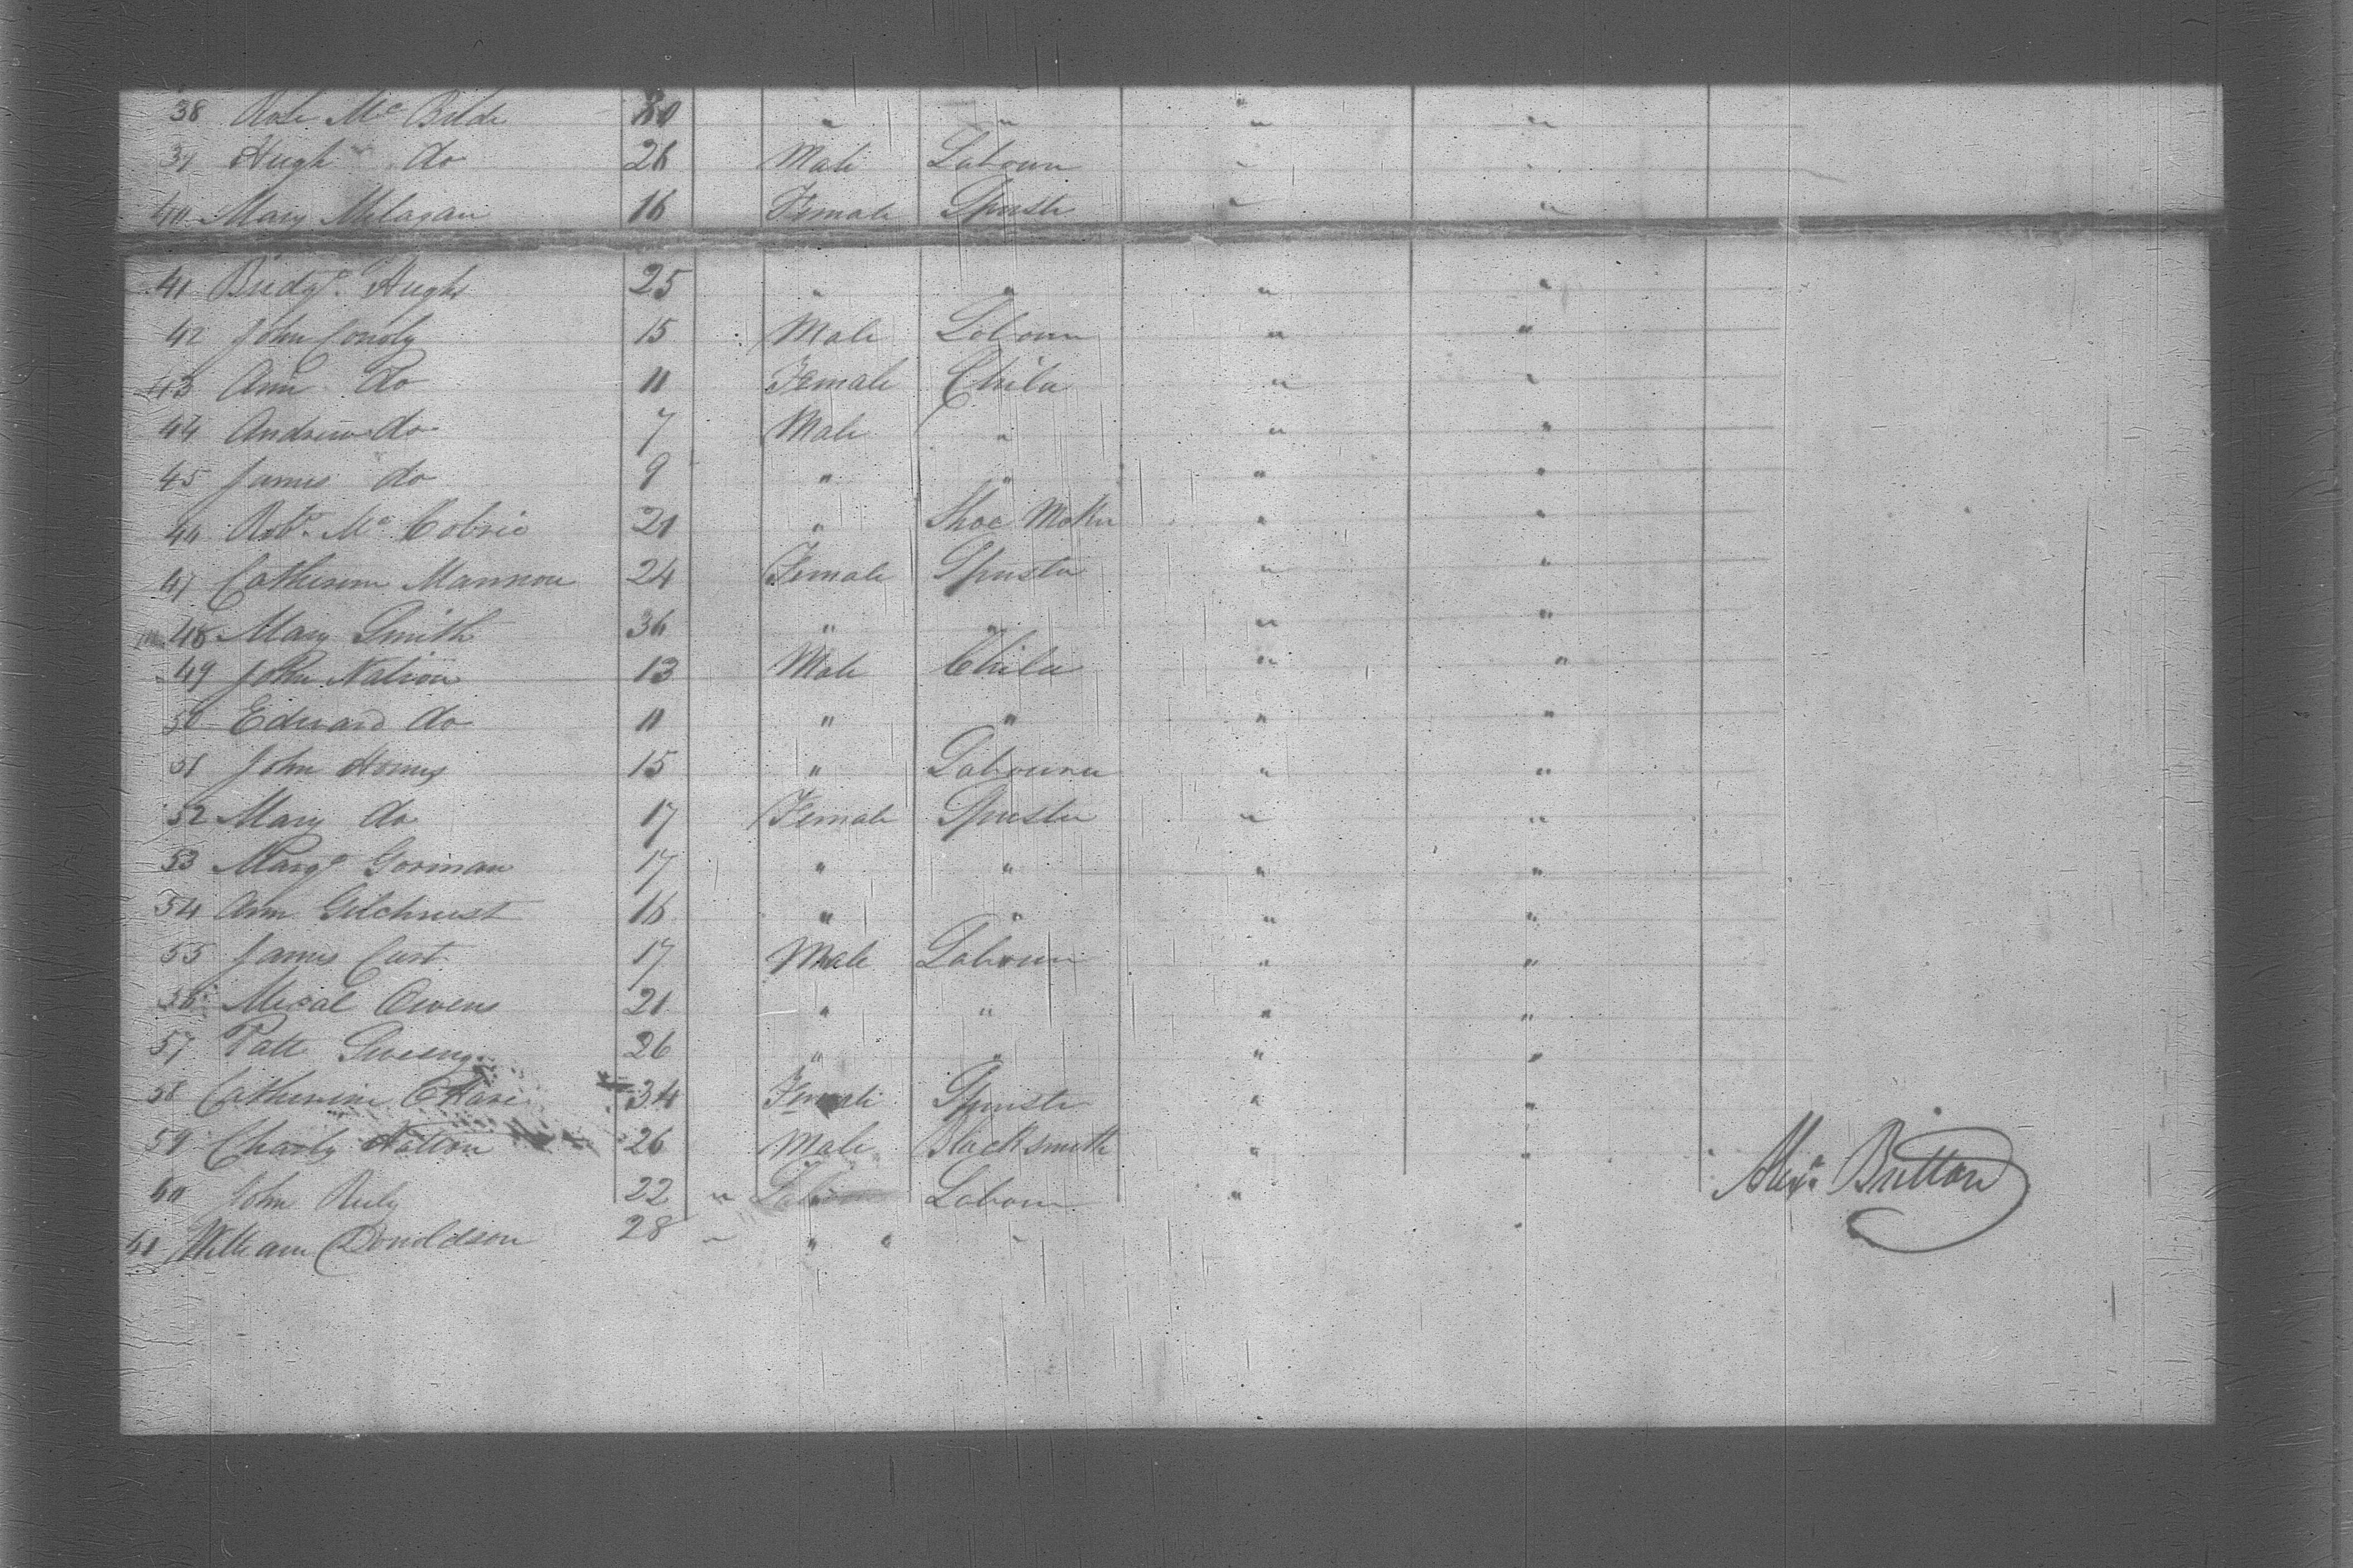 38 Rose Mc Bride 80 " " " "
39 Hugh do 26 Male Labour " "
40 Mary Milagan 16 Female Spinste " "
41 Bridgt. Hughs 25 " " " "
42 John Conoly 15 Male Labour " "
43 Ann do 11 Female Child " "
44 Andrew do 7 Male " " "
45 James do 9 " " " "
46 Robt. Mc Cobrie 21 " Shoe Maker " "
47 Catherine Mannon 24 Female Spinster " "
48 Mary Smith 36 " " " "
49 John Nation 13 Male Child " "
50 Edward do 11 " " " "
51 John Homes 15 " Labourer " "
52 Mary do 17 Female Spinster " "
53 Margt Gorman 17 " " " "
54 Ann Gilchrist 16 " " " "
55 James Curt 17 Male Labour " "
56 Mical Owens 21 " " " "
57 Patt 26 " " " "
58 Catherine OHare 34 Female Spinster " "
59 Charly 26 Male Blacksmith " "
60 John Rely 22 " Labour "
61 William Donoldson 28 " " " "
Alexr. Britton